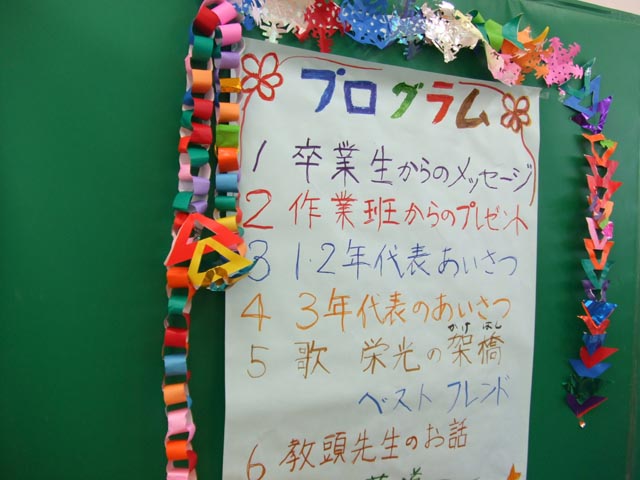 プログラム
1 卒業生からのメッセージ
2 作業班からのプレゼント
3 1・2年代表あいさつ
4 3年代表のあいさつ
かけ はし
5 歌 栄光の架橋
ベストフレンド
6 教頭先生のお話